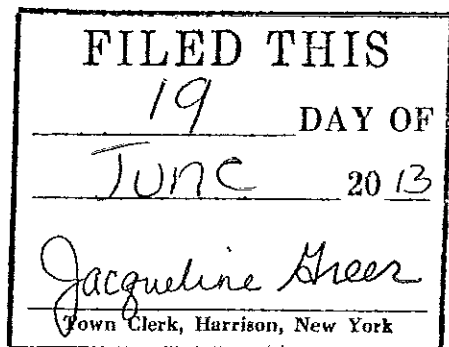 FILED THIS
19 DAY OF
June 20 13
Jacqueline Greer
Town Clerk, Harrison, New York